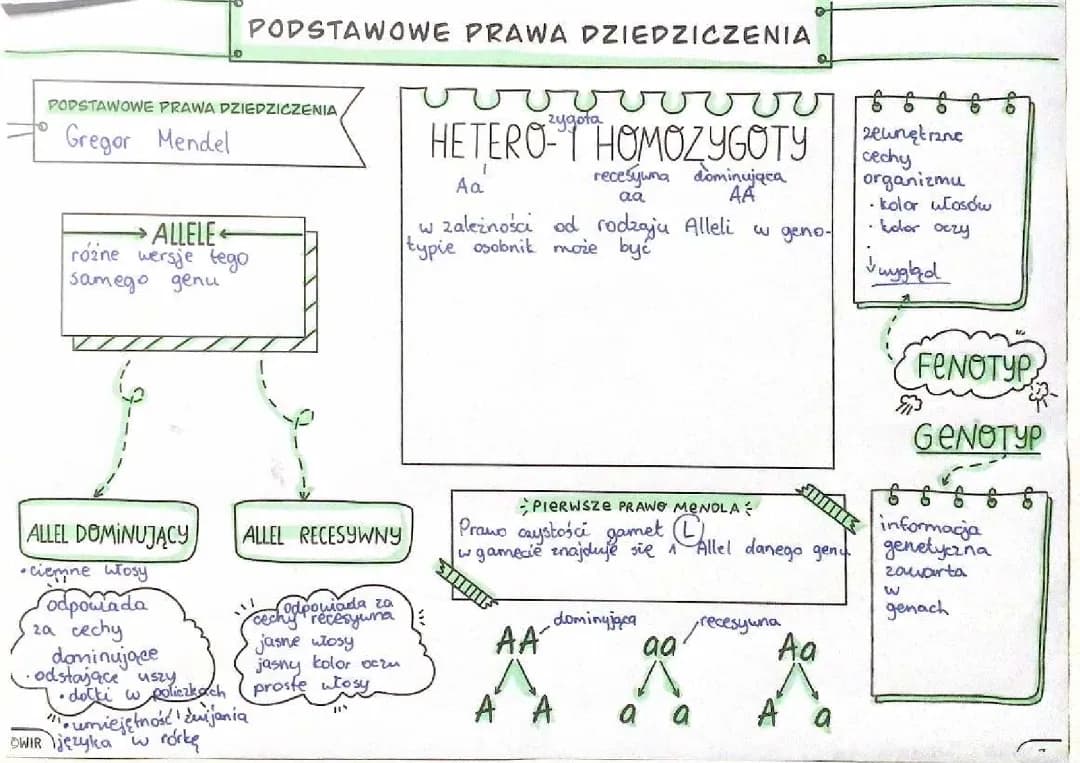 PODSTAWOWE PRAWA DZIEDZICZENIA
PODSTAWOWE PRAWA DZIEDZICZENIA
Gregor Mendel
ALLELE
różne wersje tego
samego genu
ALLEL DOMINUJĄCY
• ciemne włosy
odpowiada
za cechy
dominujące
• odstające uszy
• dołki w policzkach
• umiejętność zwijania
języka w rórkę
ALLEL RECESYWNY
odpowiada za
cechy recesywna
jasne włosy
jasny kolor oczu
proste włosy
©WIR
zygota
HETERO- I HOMOZYGOTY
Aa
recesywna dominująca
aa AA
w zależności od rodzaju Alleli w geno-
typie osobnik może być
PIERWSZE PRAWO MENDLA
Prawo czystości gamet L
w gamecie znajduje się 1 Allel danego genu
AA dominująca
A A
aa recesywna
a a
Aa
A a
zewnętrzne
cechy
organizmu
• kolor włosów
• kolor oczy
wygląd
FENOTYP
GENOTYP
informacja
genetyczna
zawarta
w
genach